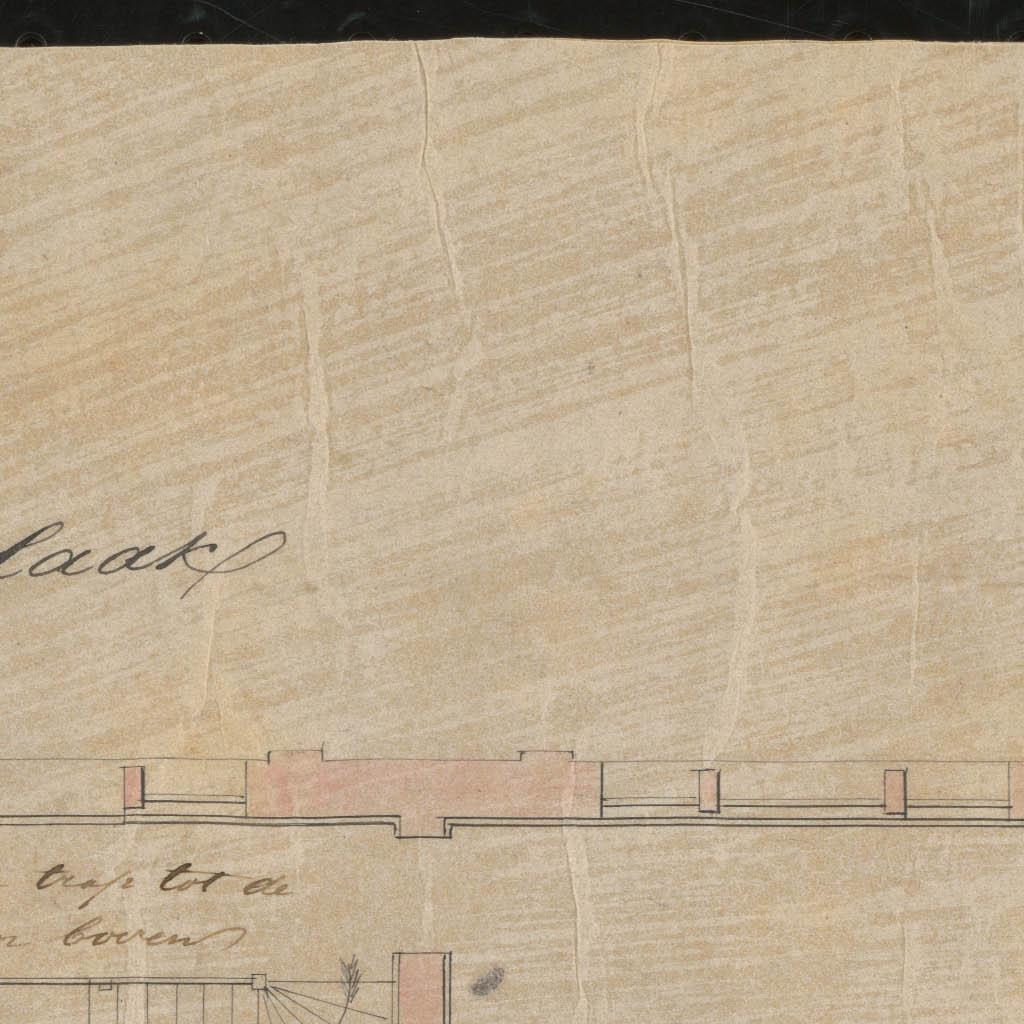 laak
trap tot de
boven